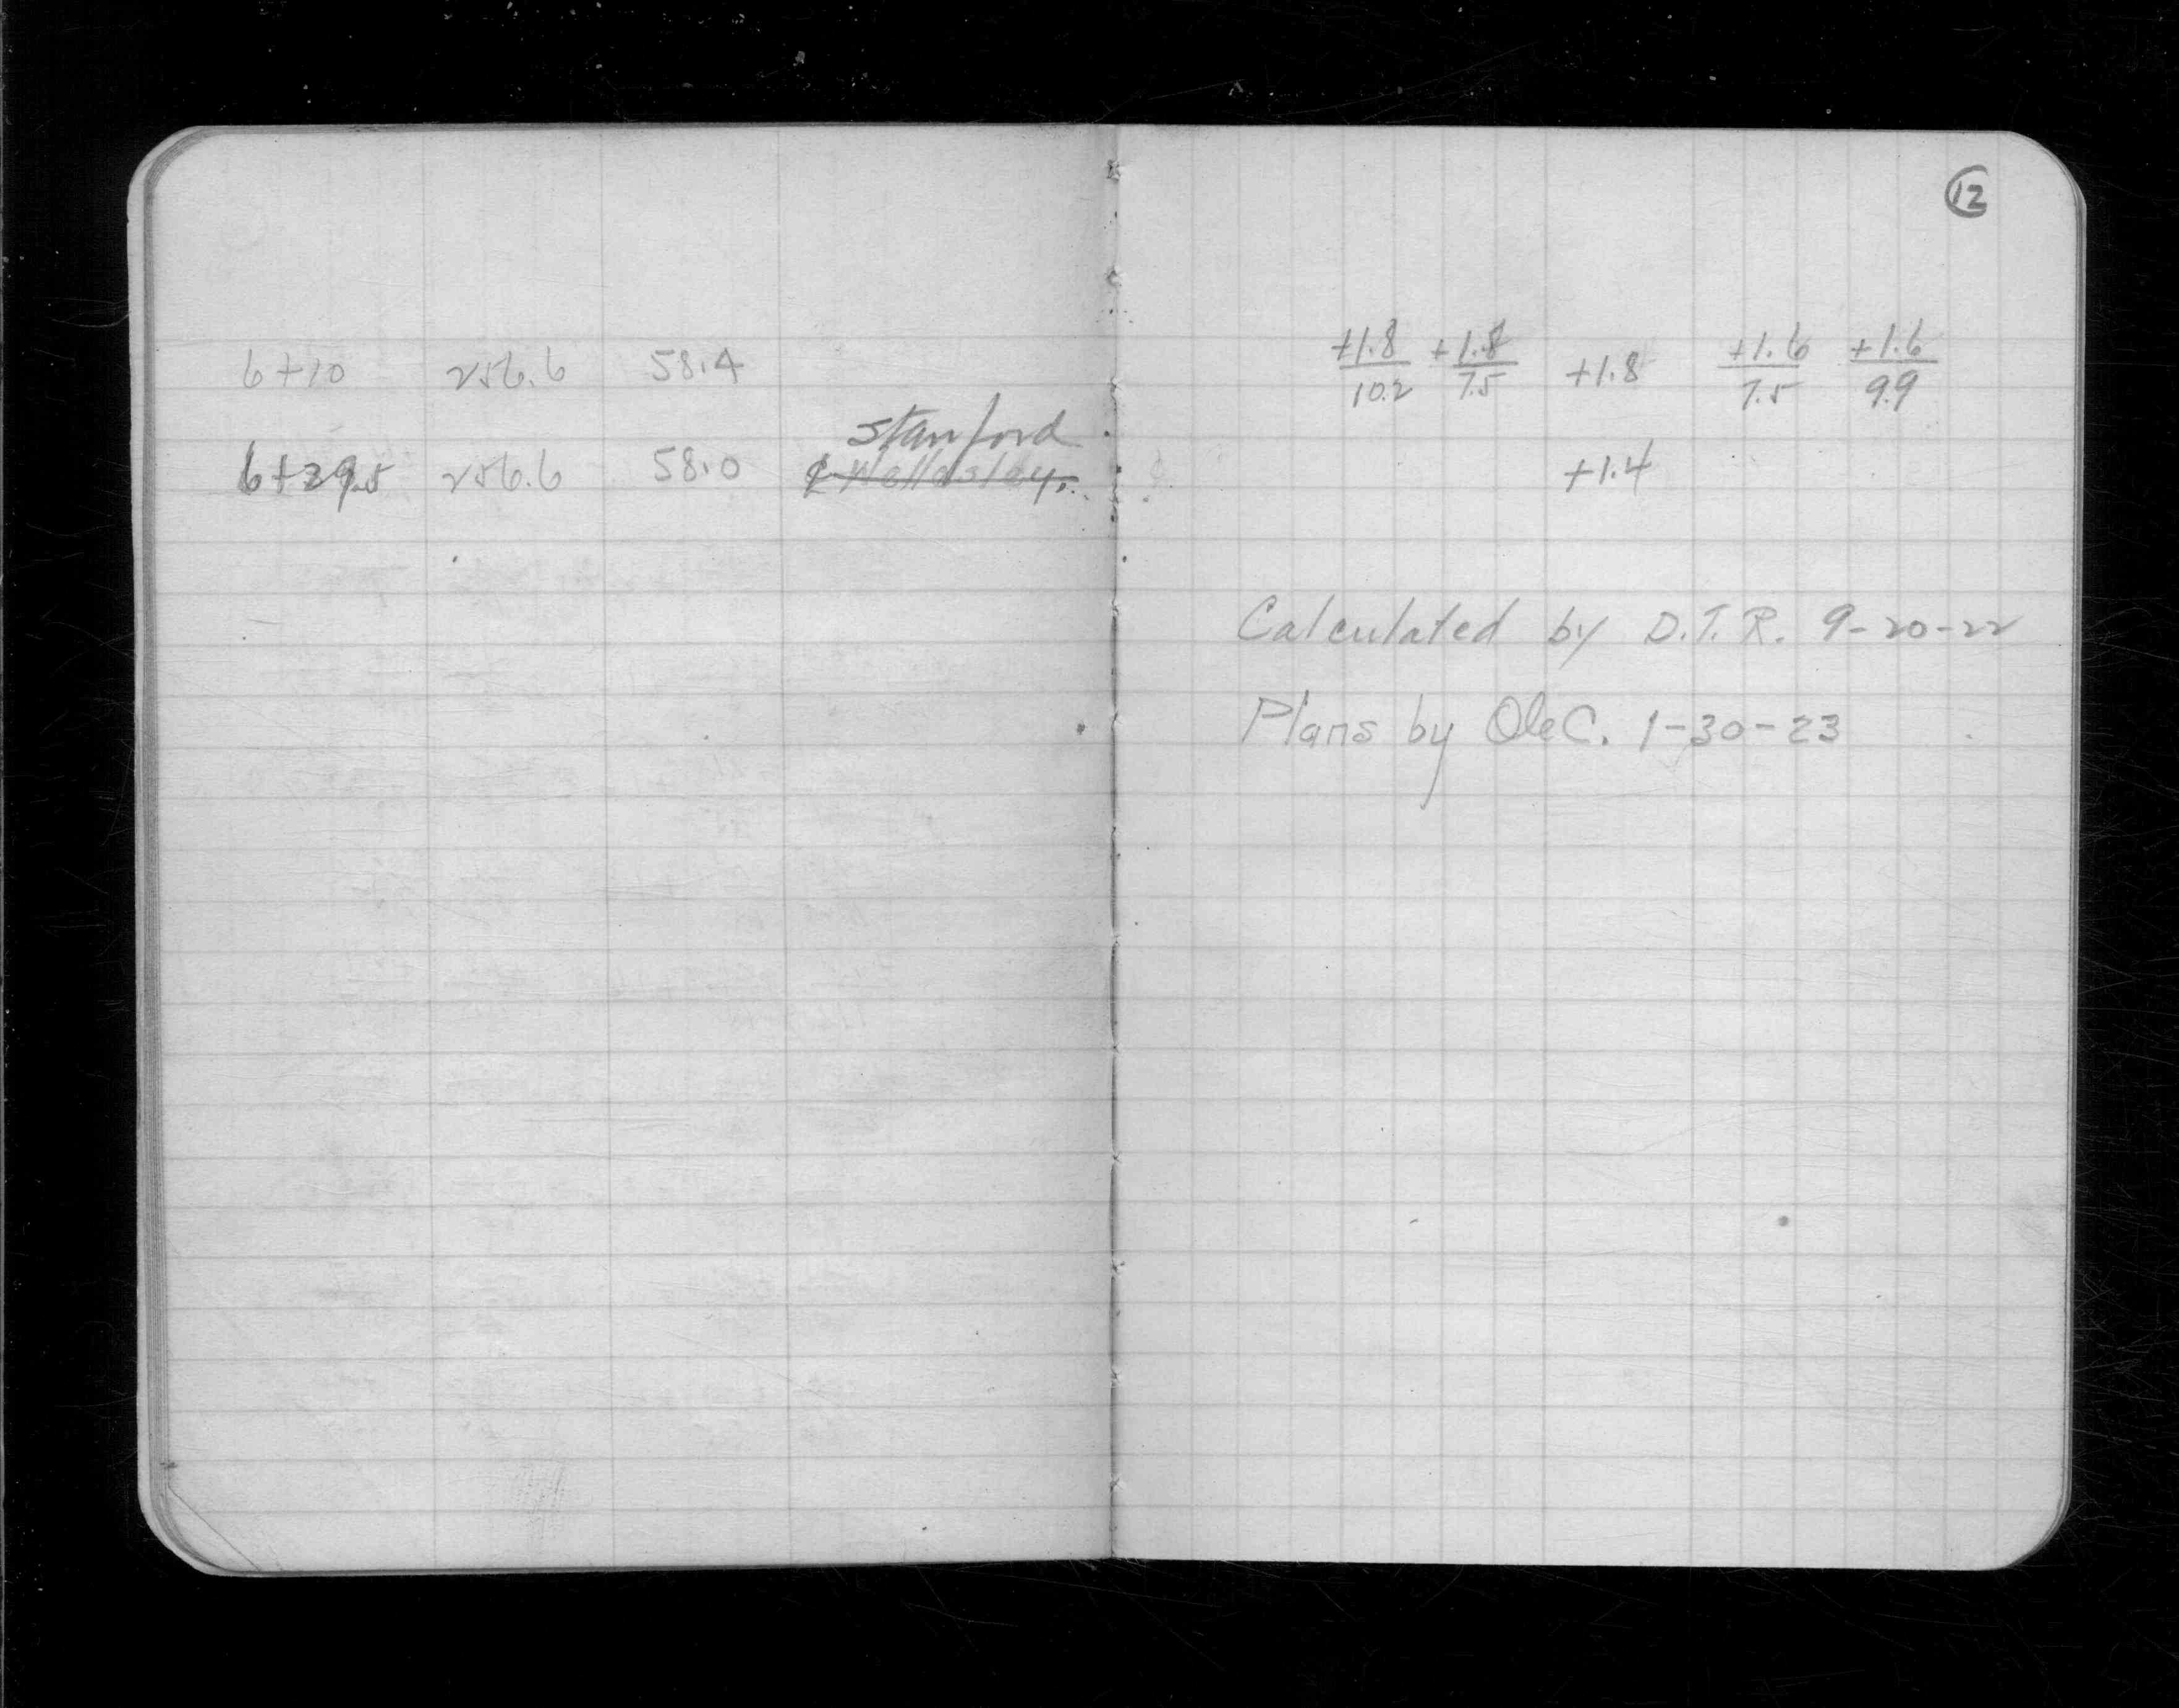 12
6+10 256.6 58.4 +1.8/10.2 +1.8/7.5 +1.8 +1.6/7.5 +1.6/9.9
Stanford
6+29.5 256.6 58.0 ℄ Wellesley. +1.4
Calculated by D.T.R. 9-20-22
Plans by OleC. 1-30-23